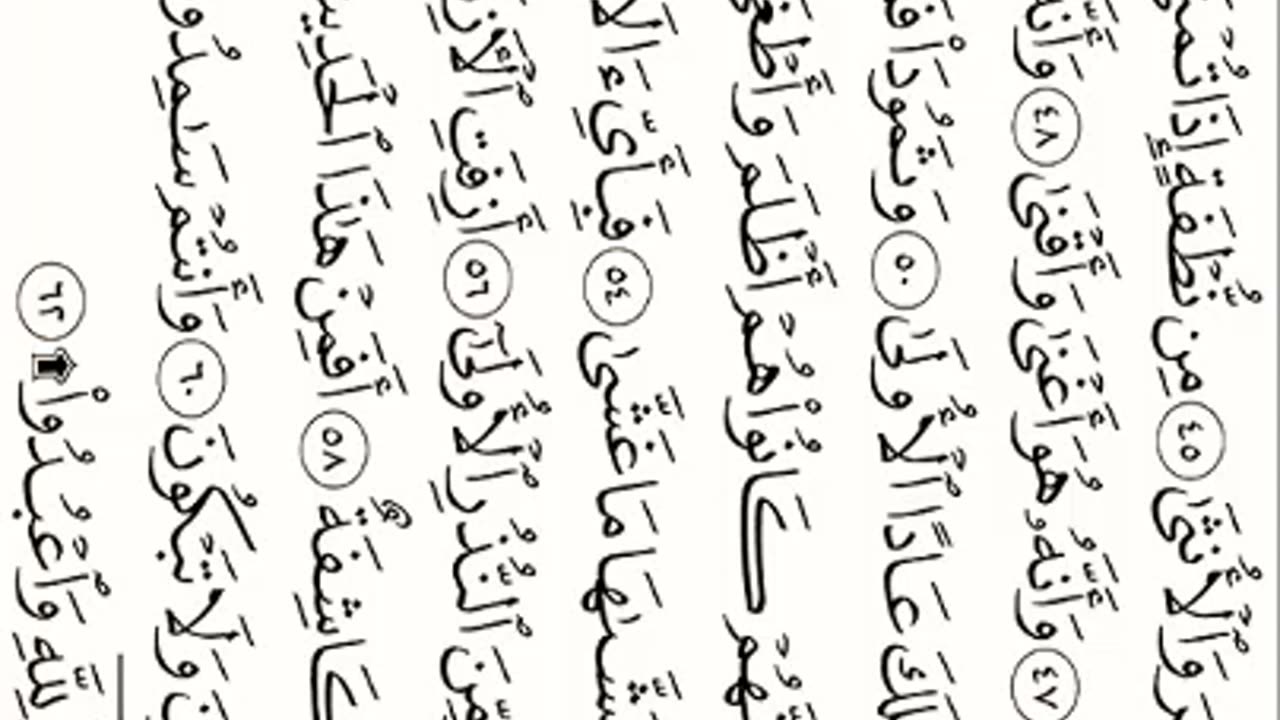 وَٱلْأُنثَىٰ ٤٥ مِن نُّطْفَةٍ إِذَا تُمْنَىٰ
٤٧ وَأَنَّهُۥ هُوَ أَغْنَىٰ وَأَقْنَىٰ ٤٨ وَأَنَّهُ
عَادًا ٱلْأُولَىٰ ٥٠ وَثَمُودَا۟ فَ
هُمْ كَانُوا۟ هُمْ أَظْلَمَ وَأَطْغَىٰ
شَّىٰهَا مَا غَشَّىٰ ٥٤ فَبِأَىِّ ءَالَا
مِّنَ ٱلنُّذُرِ ٱلْأُولَىٰٓ ٥٦ أَزِفَتِ ٱلْـَٔازِ
كَاشِفَةٌ ٥٨ أَفَمِنْ هَـٰذَا ٱلْحَدِيثِ
نَ وَلَا تَبْكُونَ ٦٠ وَأَنتُمْ سَـٰمِدُو
لِلَّهِ وَٱعْبُدُوا۟ ٦٢